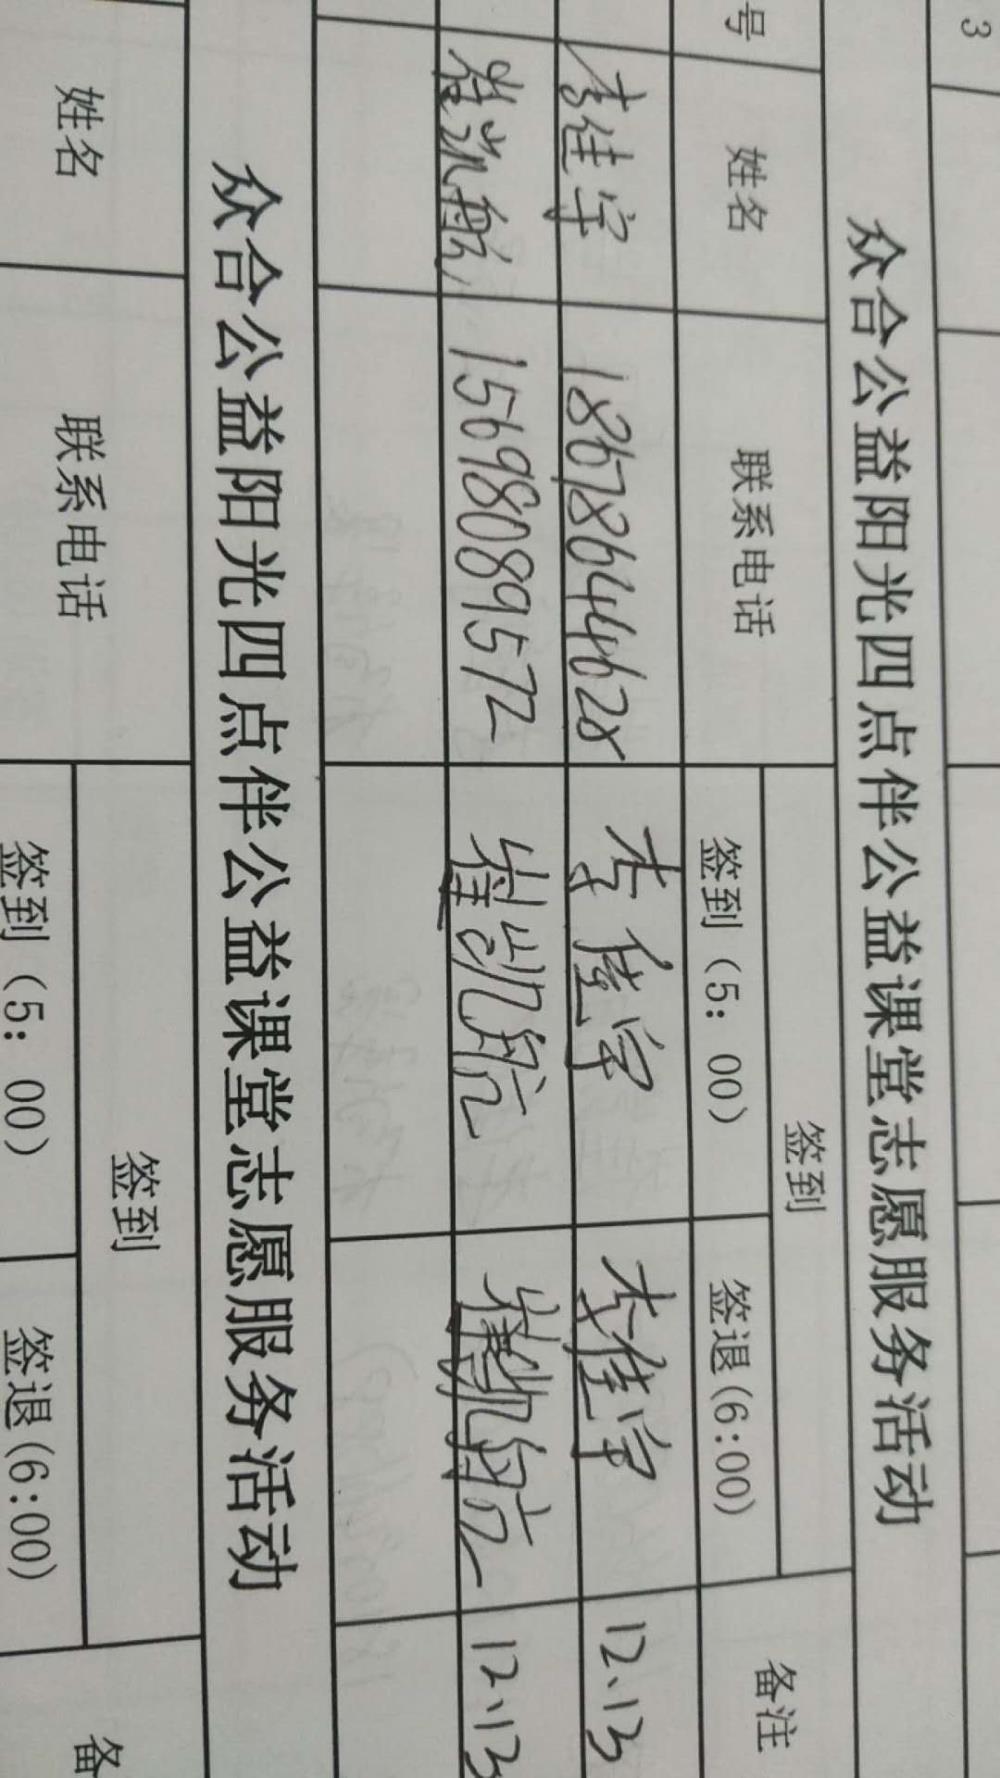 3
众合公益阳光四点伴公益课堂志愿服务活动
号 姓名 联系电话 签到 备注
签到（5：00） 签退(6:00)
李佳宇 18678644628 李佳宇 李佳宇 12.13
崔凯航 15698089572 崔凯航 崔凯航 12.13
众合公益阳光四点伴公益课堂志愿服务活动
姓名 联系电话 签到 备
签到（5：00） 签退(6:00)